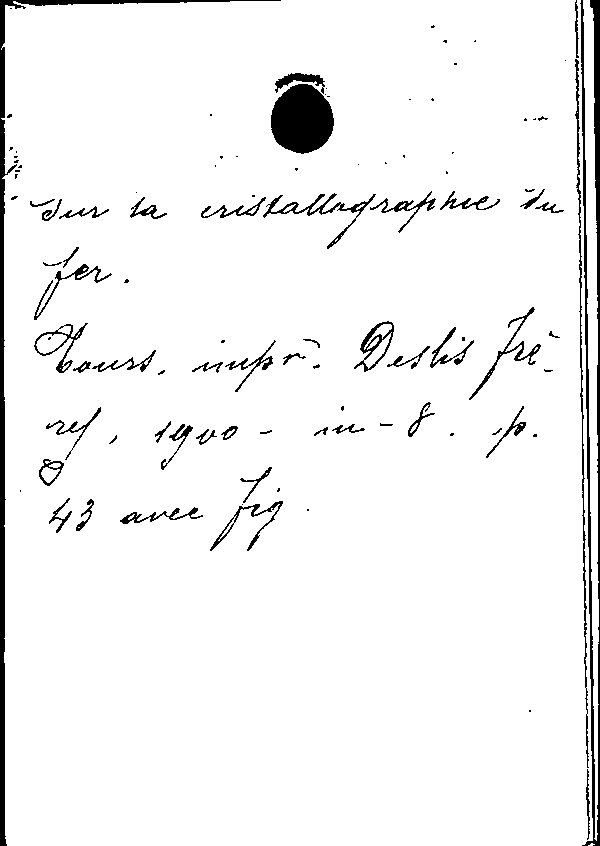 Sur la cristallographie du
fer.
Tours, impr. Deslis frè-
res, 1900 - in-8. p.
43 avec fig